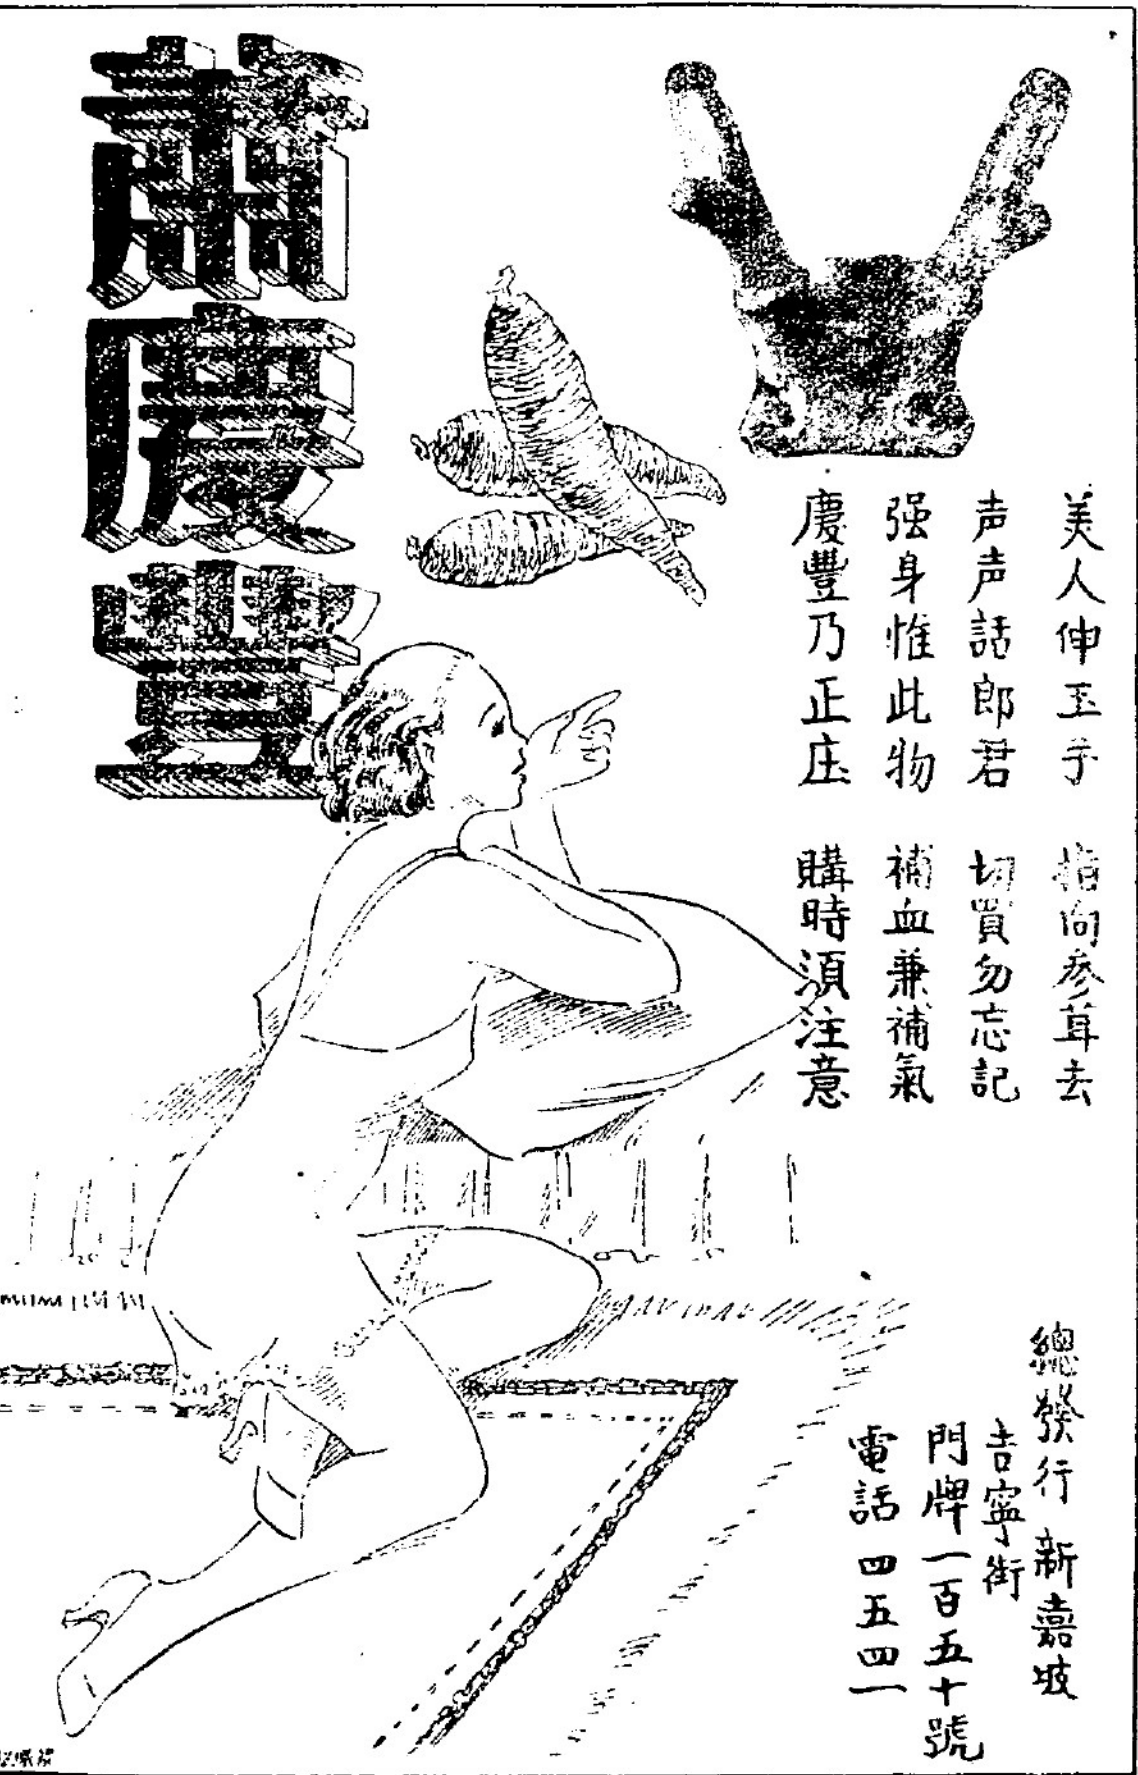 蕭慶豐
美人伸玉手 指向参茸去
声声話郎君 切買勿忘記
强身惟此物 補血兼補氣
慶豐乃正庄 購時須注意
總發行 新嘉坡
吉寧街
門牌一百五十號
電話 四五四一